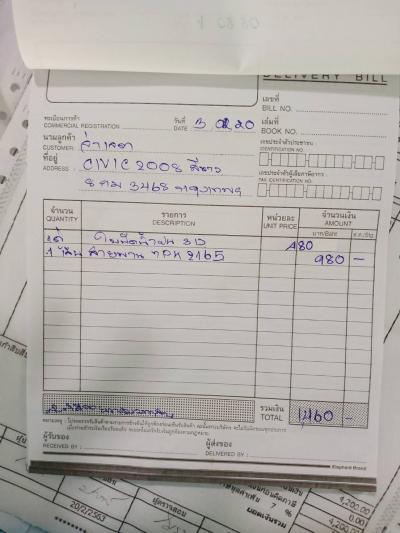 DELIVERY BILL
เลขที่
BILL NO.
ทะเบียนการค้า
COMMERCIAL REGISTRATION
วันที่
DATE
เล่มที่
BOOK NO.
นามลูกค้า
CUSTOMER
เลขประจำตัวประชาชน
IDENTIFICATION NO.
ที่อยู่
ADDRESS
CIVIC 2008 สีขาว
เลขประจำตัวผู้เสียภาษีอากร
TAX IDENTIFICATION NO.
3468 กรุงเทพฯ
จำนวน
QUANTITY
รายการ
DESCRIPTION
หน่วยละ
UNIT PRICE
จำนวนเงิน
AMOUNT
บาท/Baht
ใบปัดน้ำฝน 3D
480
1 เส้น สายพาน 7PK 2165
980 -
รวมเงิน
TOTAL
1,460 -
ผู้รับของ
RECEIVED BY
ผู้ส่งของ
DELIVERED BY
Elephant Brand
20/2/2563
ผู้ตรวจสอบ
7 %
ยอดเงินรวม
4,200.00